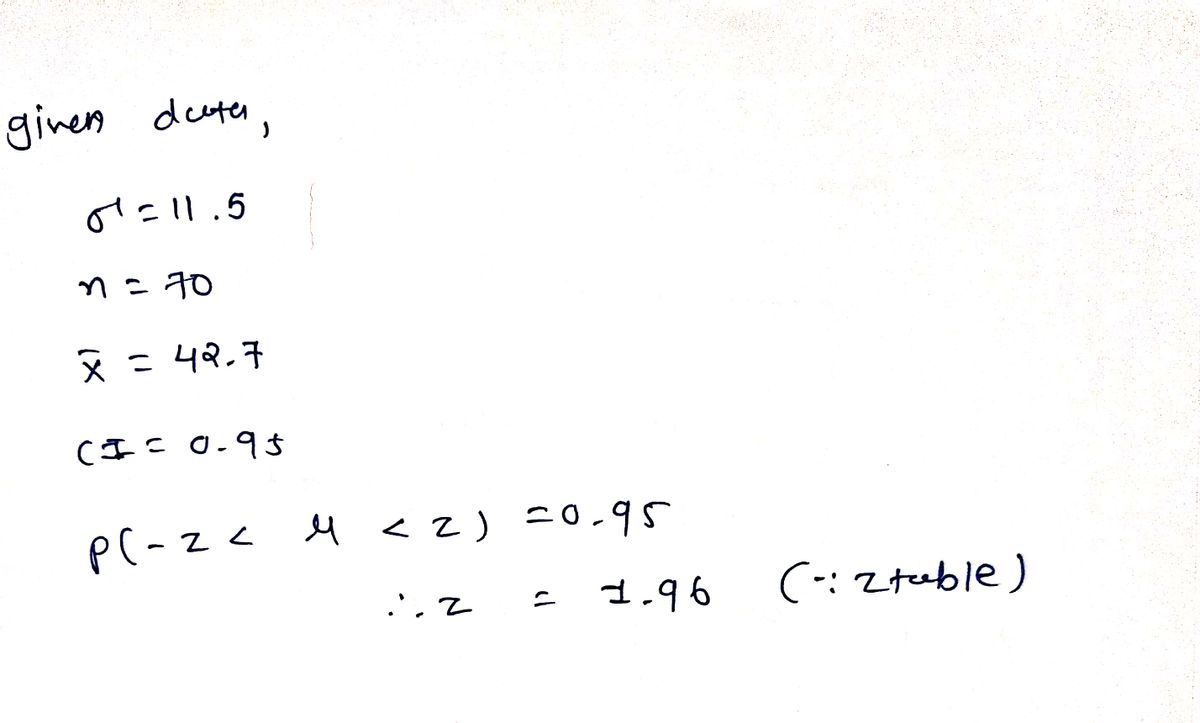 given data,
σ = 11.5
n = 70
x̄ = 42.7
CI = 0.95
P(-z < μ < z) = 0.95
∴ z = 1.96 (∵ z table)